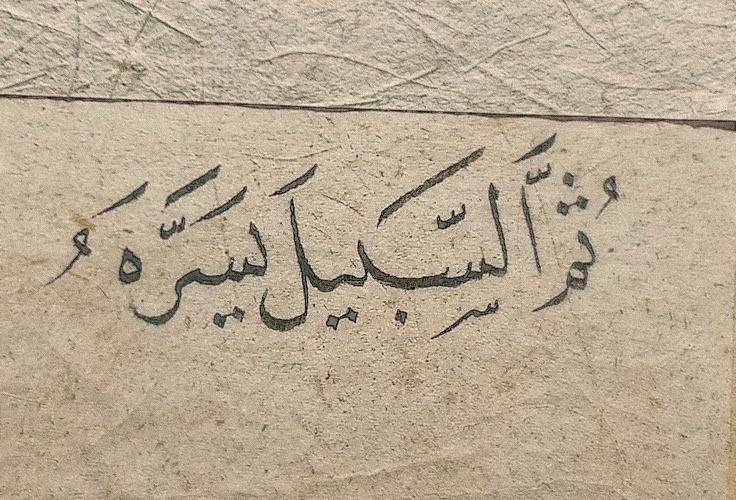 ثُمَّ السَّبِيلَ يَسَّرَهُ